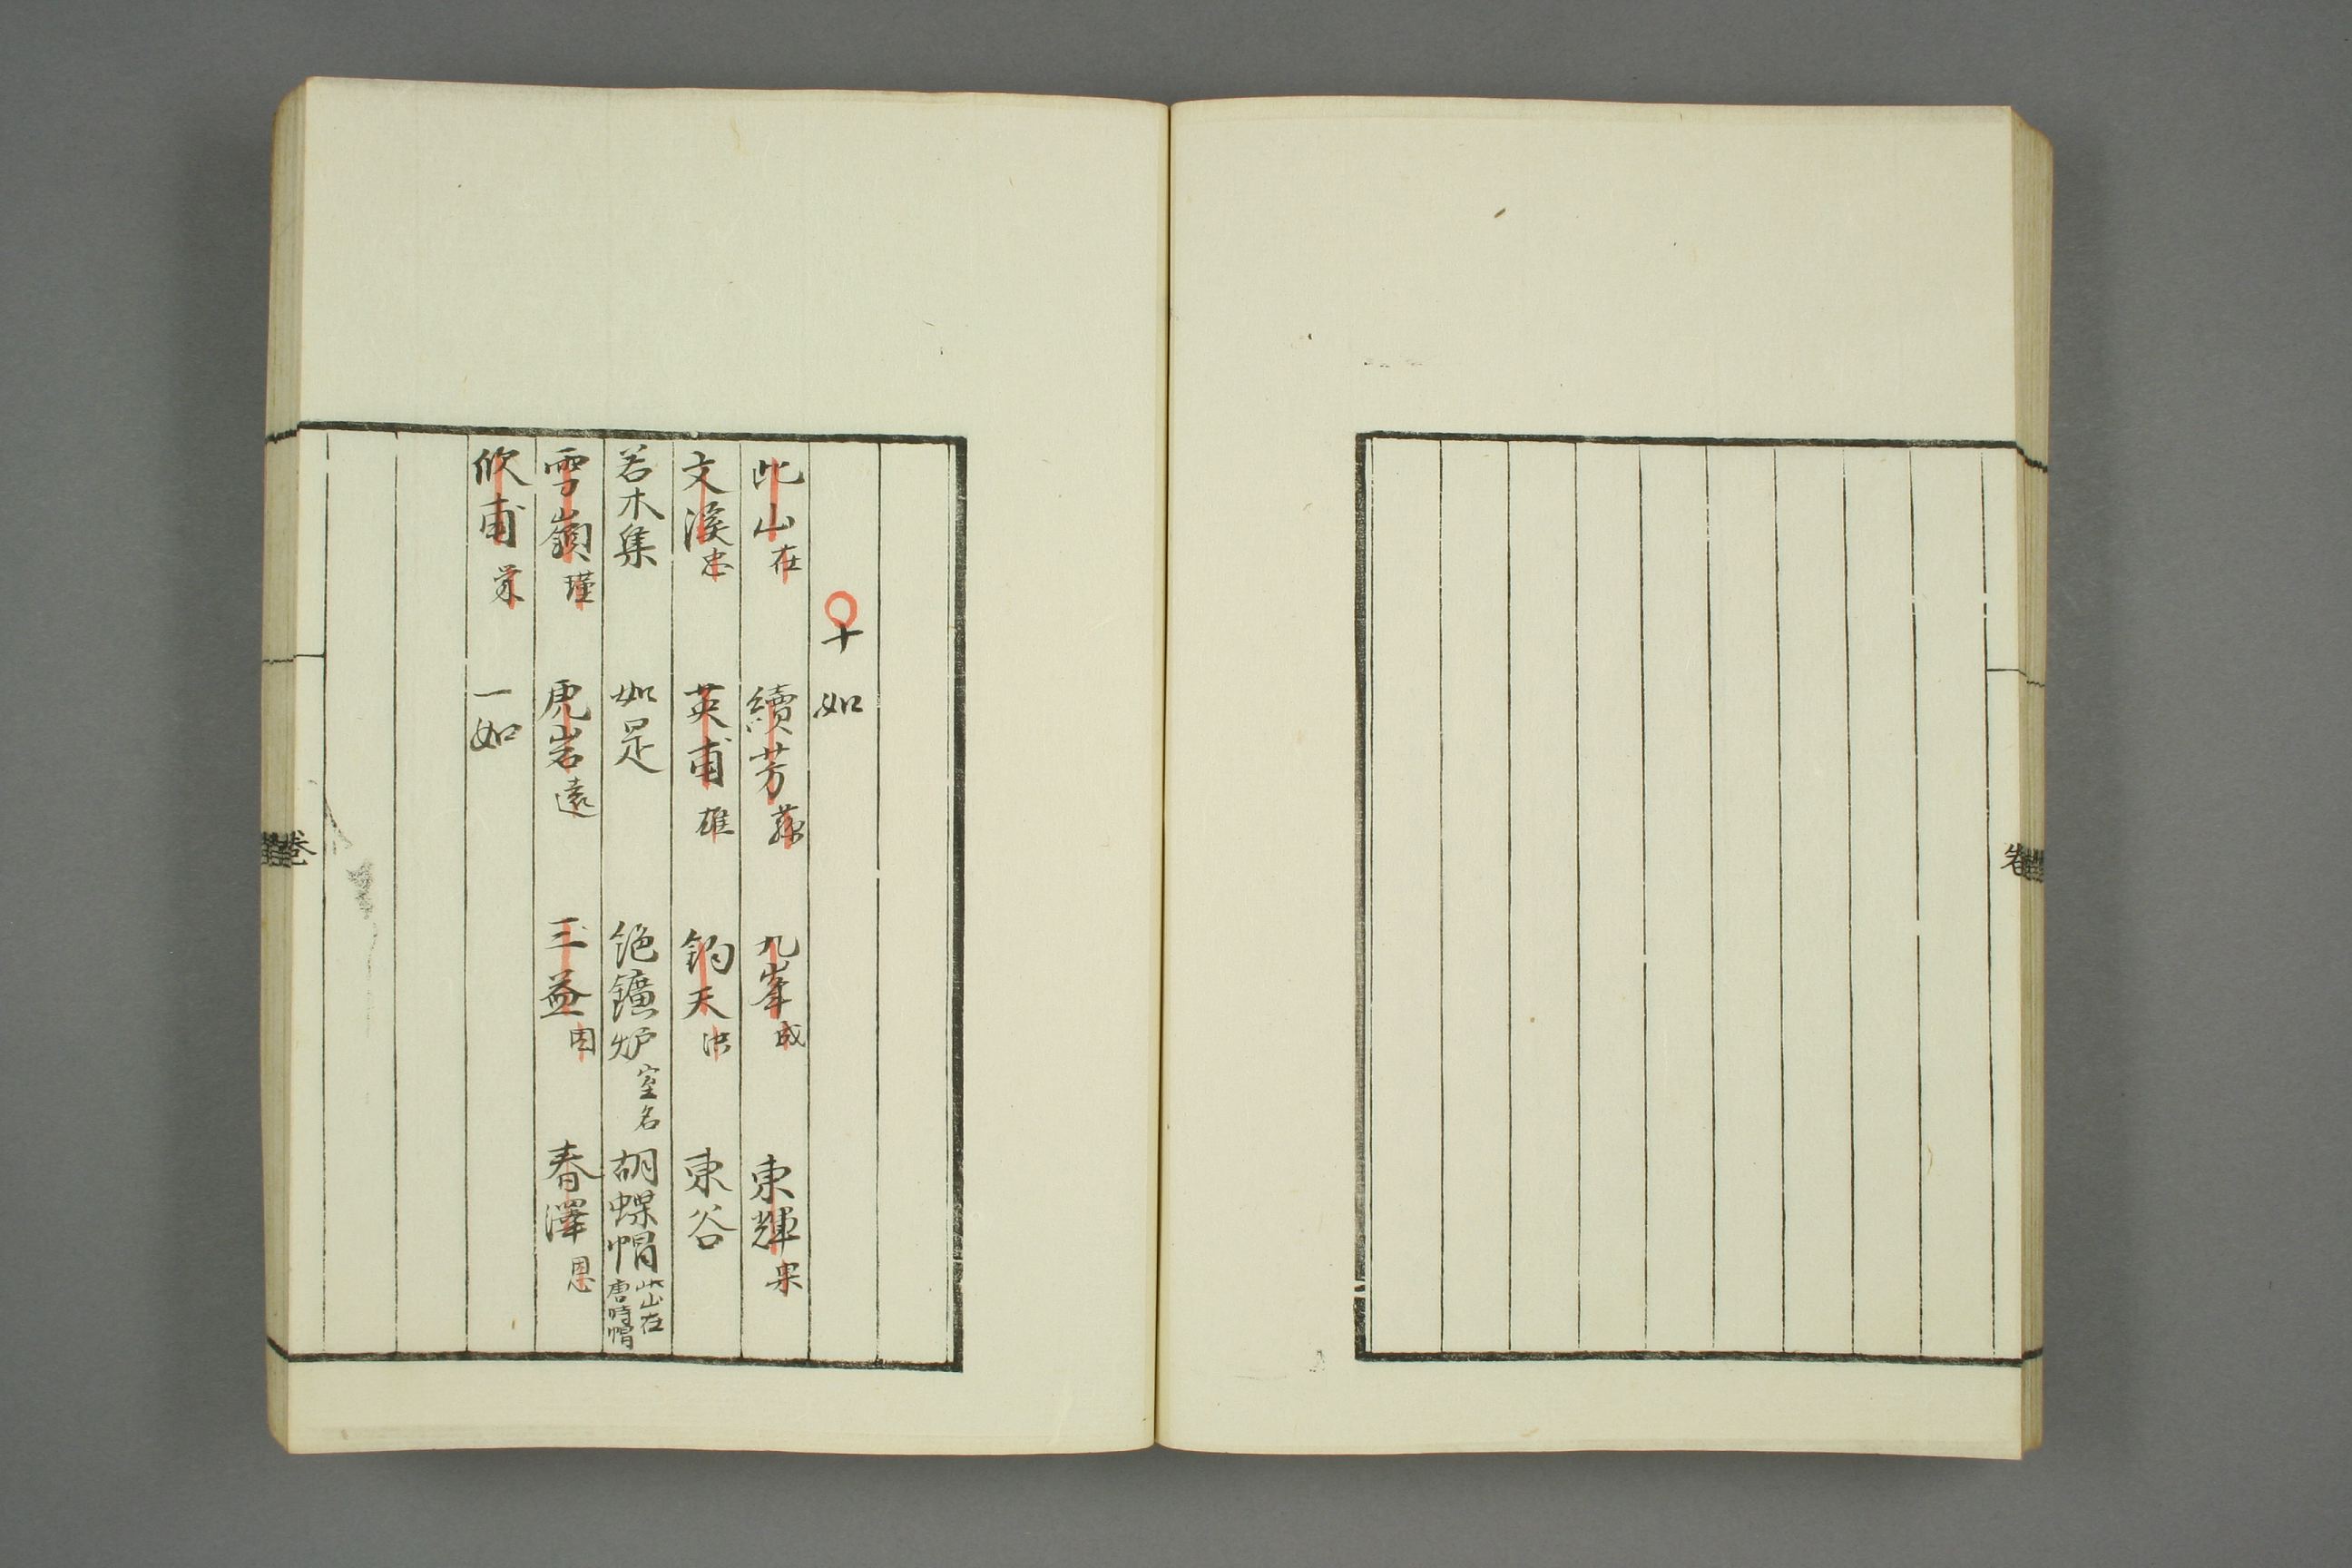 卷
十如
此山在 續芳蓀 九峯成 東輝杲
文溪忠 英甫雄 鈞天洪 東谷
若木集 如是 絶鑛炉室名 胡蝶帽此山在唐時帽
雪嶺瑾 虎岩遠 三益因 春澤恩
欣甫 一如
卷